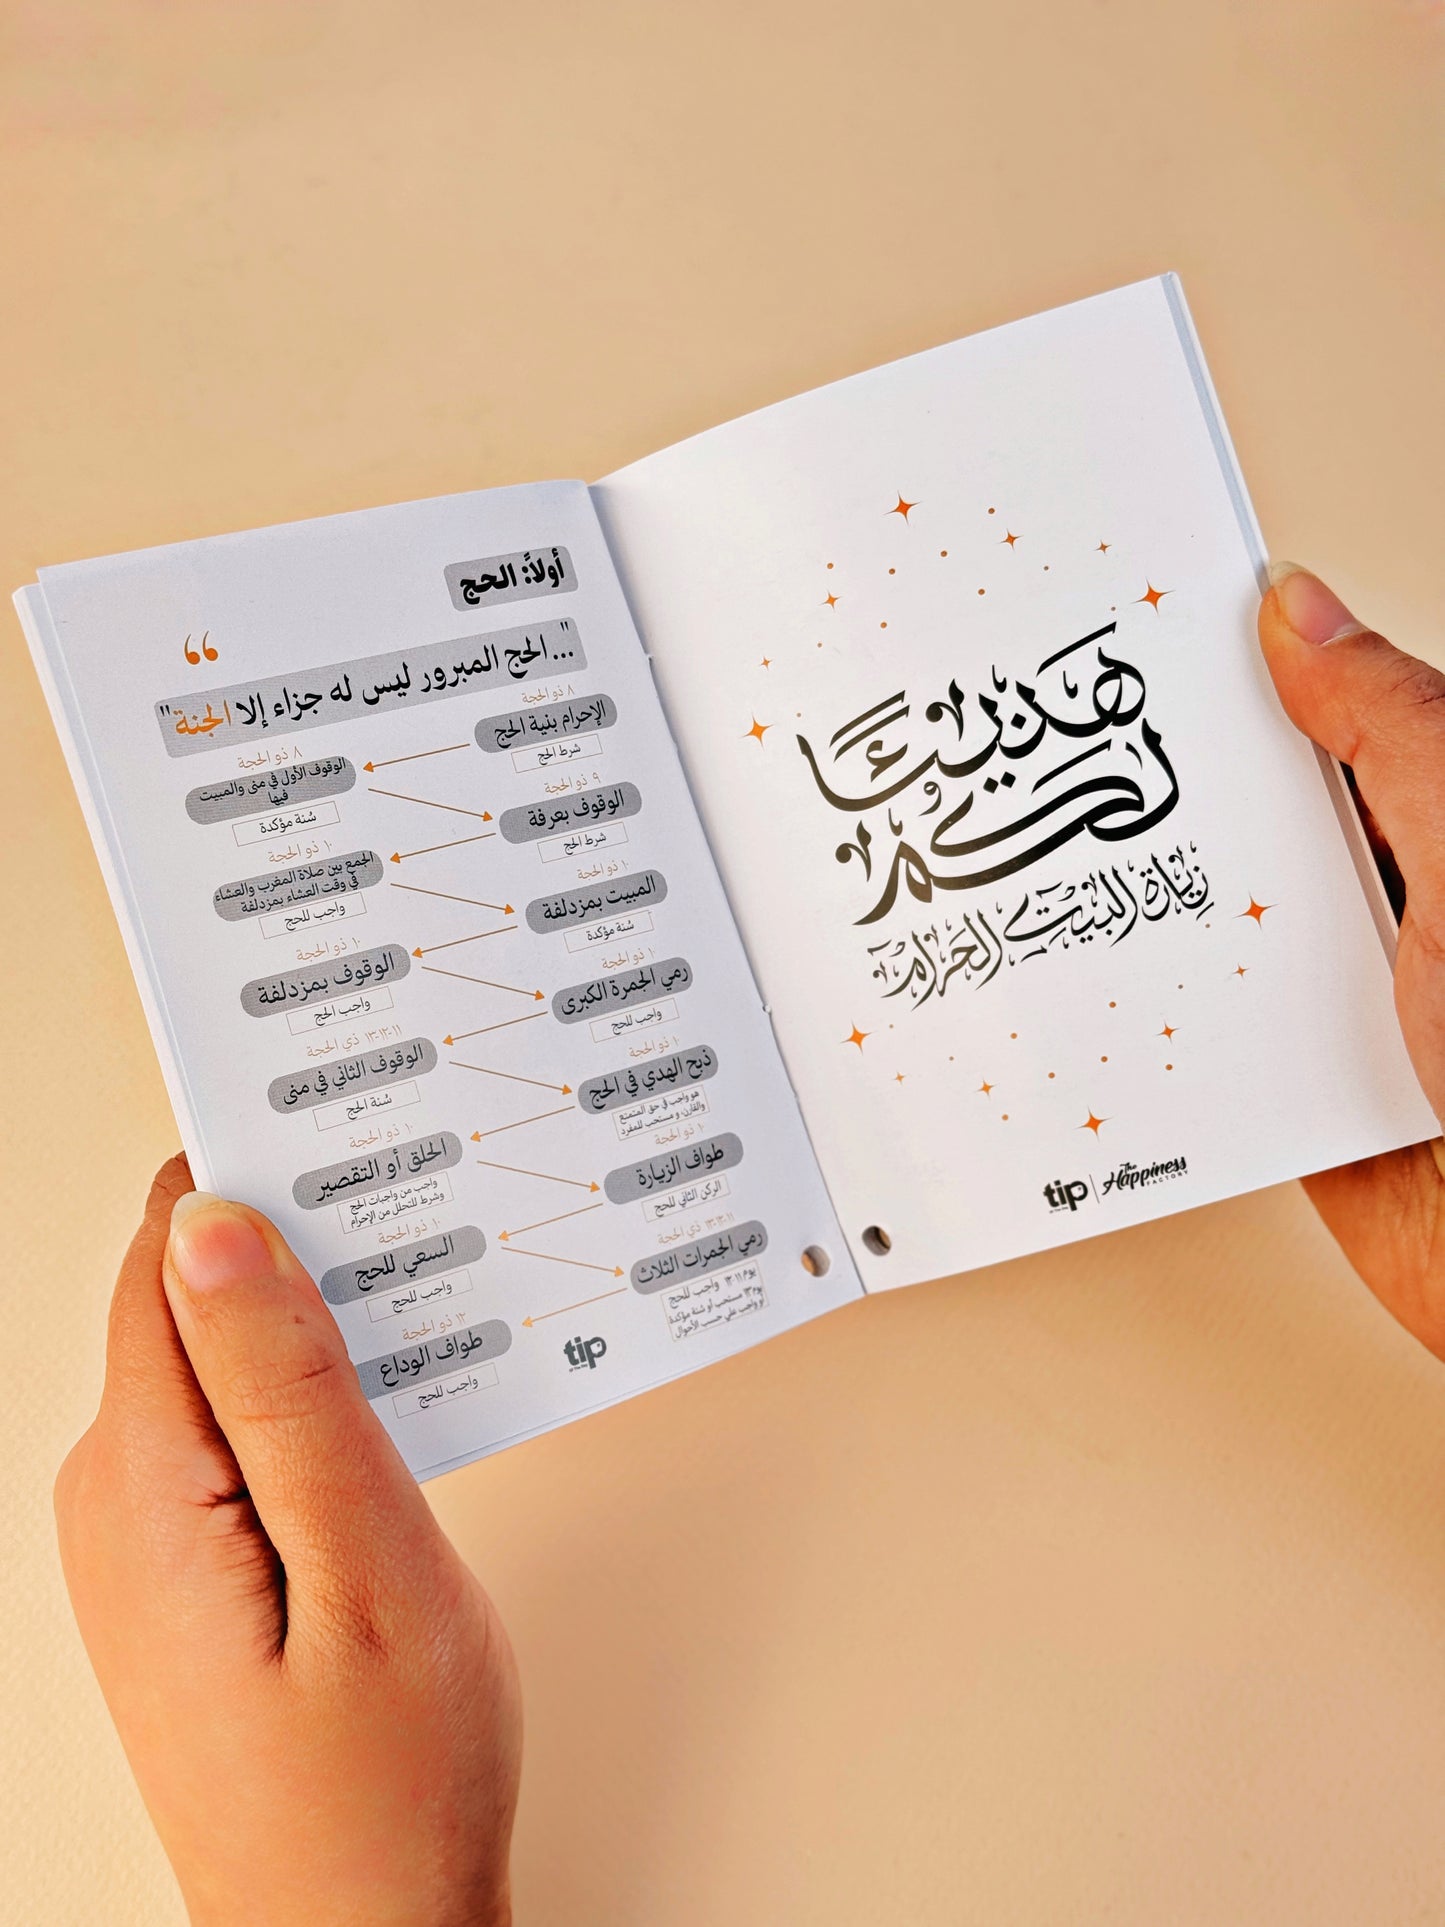 هنيئًا
لكم
زيارة البيت الحرام
tip
The
Happiness
FACTORY
أولاً: الحج
"... الحج المبرور ليس له جزاء إلا الجنة"
٨ ذو الحجة
الإحرام بنية الحج
شرط الحج
٨ ذو الحجة
الوقوف الأول في منى والمبيت
فيها
سُنة مؤكدة
٩ ذو الحجة
الوقوف بعرفة
شرط الحج
١٠ ذو الحجة
الجمع بين صلاة المغرب والعشاء
في وقت العشاء بمزدلفة
واجب للحج
١٠ ذو الحجة
المبيت بمزدلفة
سُنة مؤكدة
١٠ ذو الحجة
الوقوف بمزدلفة
واجب الحج
١٠ ذو الحجة
رمي الجمرة الكبرى
واجب للحج
١١-١٢-١٣ ذي الحجة
الوقوف الثاني في منى
سُنة الحج
١٠ ذو الحجة
ذبح الهدي في الحج
هو واجب في حق المتمتع
والقارن، و مستحب للمفرد
١٠ ذو الحجة
الحلق أو التقصير
واجب من واجبات الحج
وشرط للتحلل من الإحرام
١٠ ذو الحجة
طواف الزيارة
الركن الثاني للحج
١٠ ذو الحجة
السعي للحج
واجب للحج
١١-١٢-١٣ ذي الحجة
رمي الجمرات الثلاث
يوم ١١-١٢ واجب للحج
يوم ١٣ مستحب أو سُنة مؤكدة
أو واجب علي حسب الأحوال
١٢ ذو الحجة
طواف الوداع
واجب للحج
tip